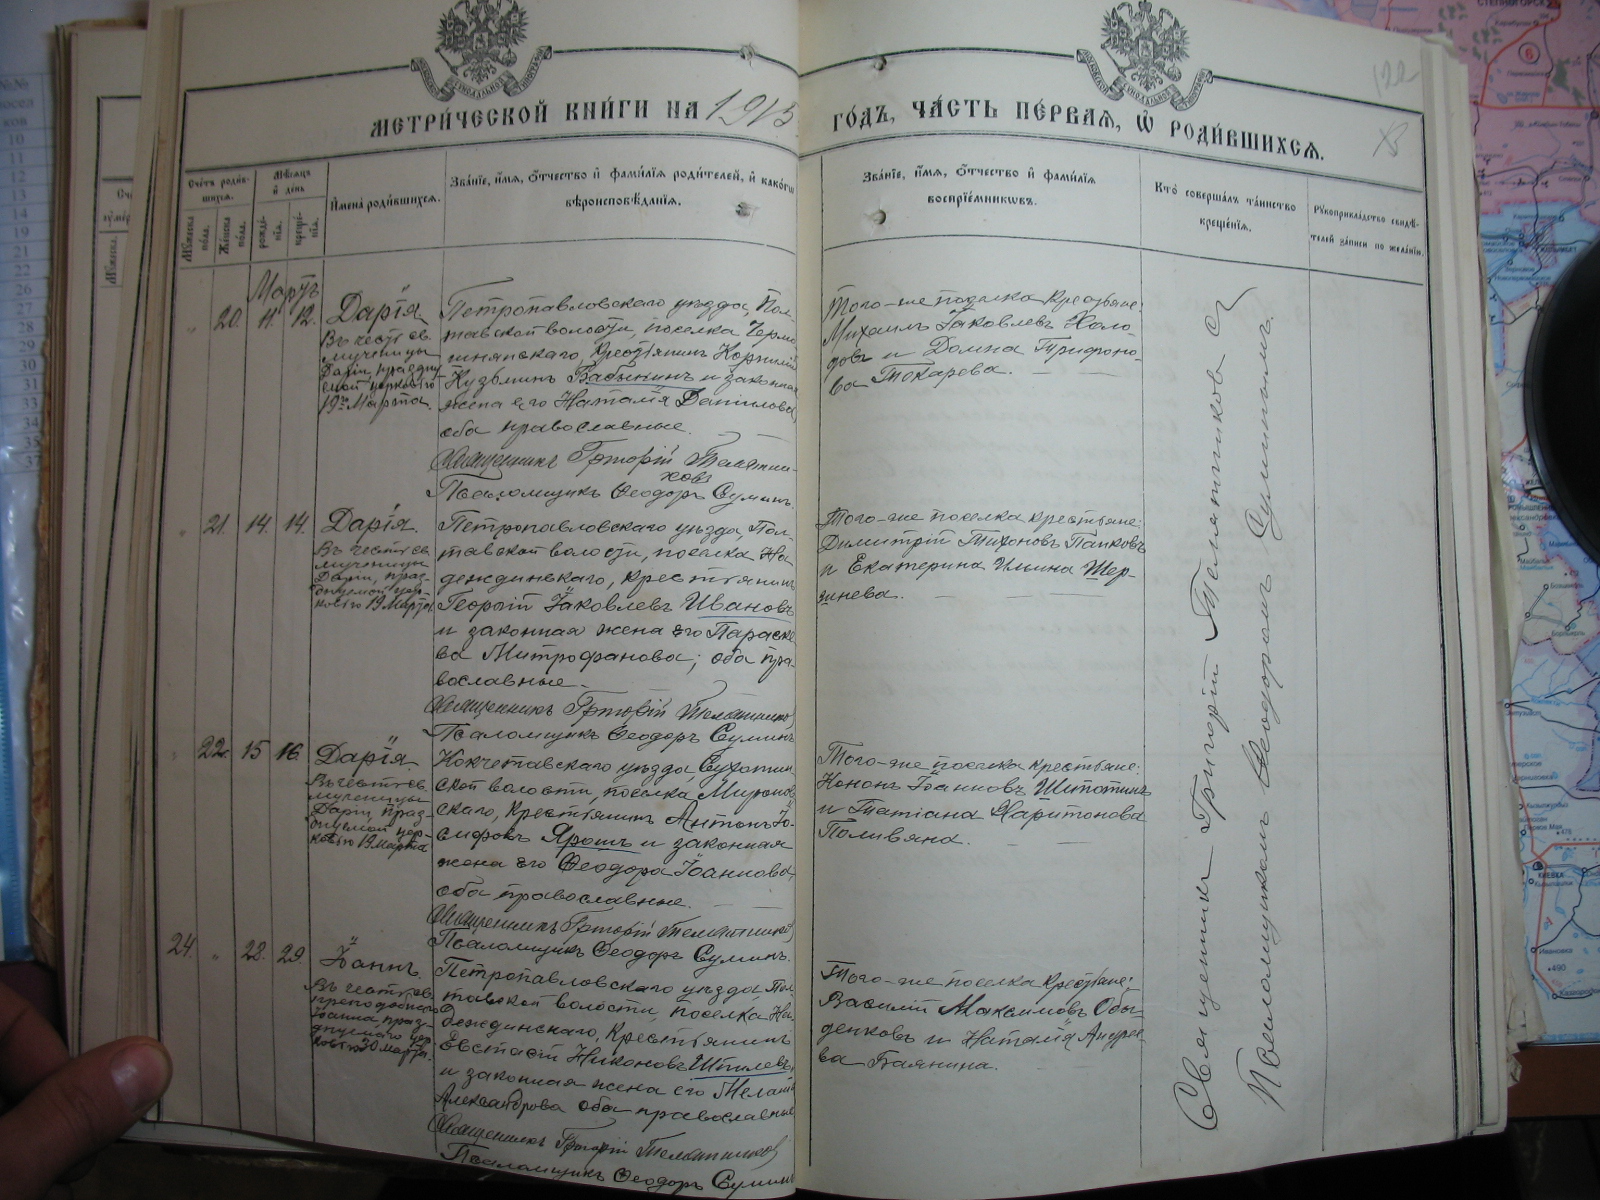 МЕТРИ́ЧЕСКОЙ КНИ́ГИ НА 1915 ГО́ДЪ, ЧА́СТЬ ПЕ́РВАЯ, Ѡ҆ РОДИ́ВШИХСЯ.
Сче́тъ роди́в-
шихся.
Мѣ́сяцъ
и҆ де́нь
Му́жеска
по́ла.
Же́нска
по́ла.
рожде́-
нїя.
креще́-
нїя.
И҆мена̀ роди́вшихся.
Зва́нїе, и҆́мя, ѻ҆́тчество и҆ фами́лїя роди́телей, и҆ како́гѡ
вѣроисповѣ́данїя.
Зва́нїе, и҆́мя, ѻ҆́тчество и҆ фами́лїя
воспрїе́мникѡвъ.
Кто̀ соверша́лъ та́инство
креще́нїя.
Рꙋкоприкла́дство свидѣ́-
телей за́писи по жела́нїю.
Мартъ
20. 11. 12. Дарія.
Въ честь св.
мученицы
Даріи, праздну
емой церковію
19го Марта.
Петропавловскаго уѣзда, Пол-
тавской волости, поселка Черно
Крестьянинъ Корнилій
Кузьминъ Бабынинъ и законная
жена его Наталія Данилова,
оба православные.
Священникъ Григорій Телятни-
ковъ
Псаломщикъ Ѳеодоръ Суминъ.
Того-же поселка крестьяне:
Михаилъ Іаковлевъ Коло
довъ и Домна Трифоно-
ва Токарева.
21. 14. 14. Дарія.
Въ честь св.
мученицы
Даріи, праз-
днуемой цер-
ковью 19 Марта.
Петропавловскаго уѣзда, Пол-
тавской волости, поселка На
деждинскаго, крестьянинъ
Георгій Іаковлевъ Ивановъ
и законная жена его Параске
ва Митрофанова; оба пра-
вославные.
Священникъ Григорій Телятниковъ
Псаломщикъ Ѳеодоръ Суминъ
Того-же поселка крестьяне:
Димитрій Мироновъ Папковъ
и Екатерина Ильина Шер-
шнева.
22. 15 16. Дарія.
Въ честь св.
мученицы
Даріи, праз-
днуемой цер-
ковью 19 Марта
Кокчетавскаго уѣзда, Сухотин
ской волости, поселка Миронов
скаго, крестьянинъ Антонъ Іо-
сифовъ Ярошъ и законная
жена его Ѳеодора Іоаннова,
оба православные.
Священникъ Григорій Телятниковъ
Псаломщикъ Ѳеодоръ Суминъ.
Того-же поселка крестьяне:
Кононъ Іоанновъ Шипотинъ
и Татіана Харитонова
Поливяна.
24. 28. 29. Іоаннъ.
Въ честь св.
преподобнаго
Іоанна, праз-
днуемаго цер
ковью 30 марта.
Петропавловскаго уѣзда, Пол-
тавской волости, поселка На-
деждинскаго, крестьянинъ
Евстафій Никоновъ Шпилевъ
и законная жена его Мелані
Александрова оба православные
Священникъ Григорій Телятниковъ
Псаломщикъ Ѳеодоръ Суминъ
Того-же поселка крестьяне:
Василій Максимовъ Обы-
денковъ и Наталія Андрее
ва Баянина.
Священникъ Григорій Телятниковъ съ
Псаломщикомъ Ѳеодоромъ Суминымъ.